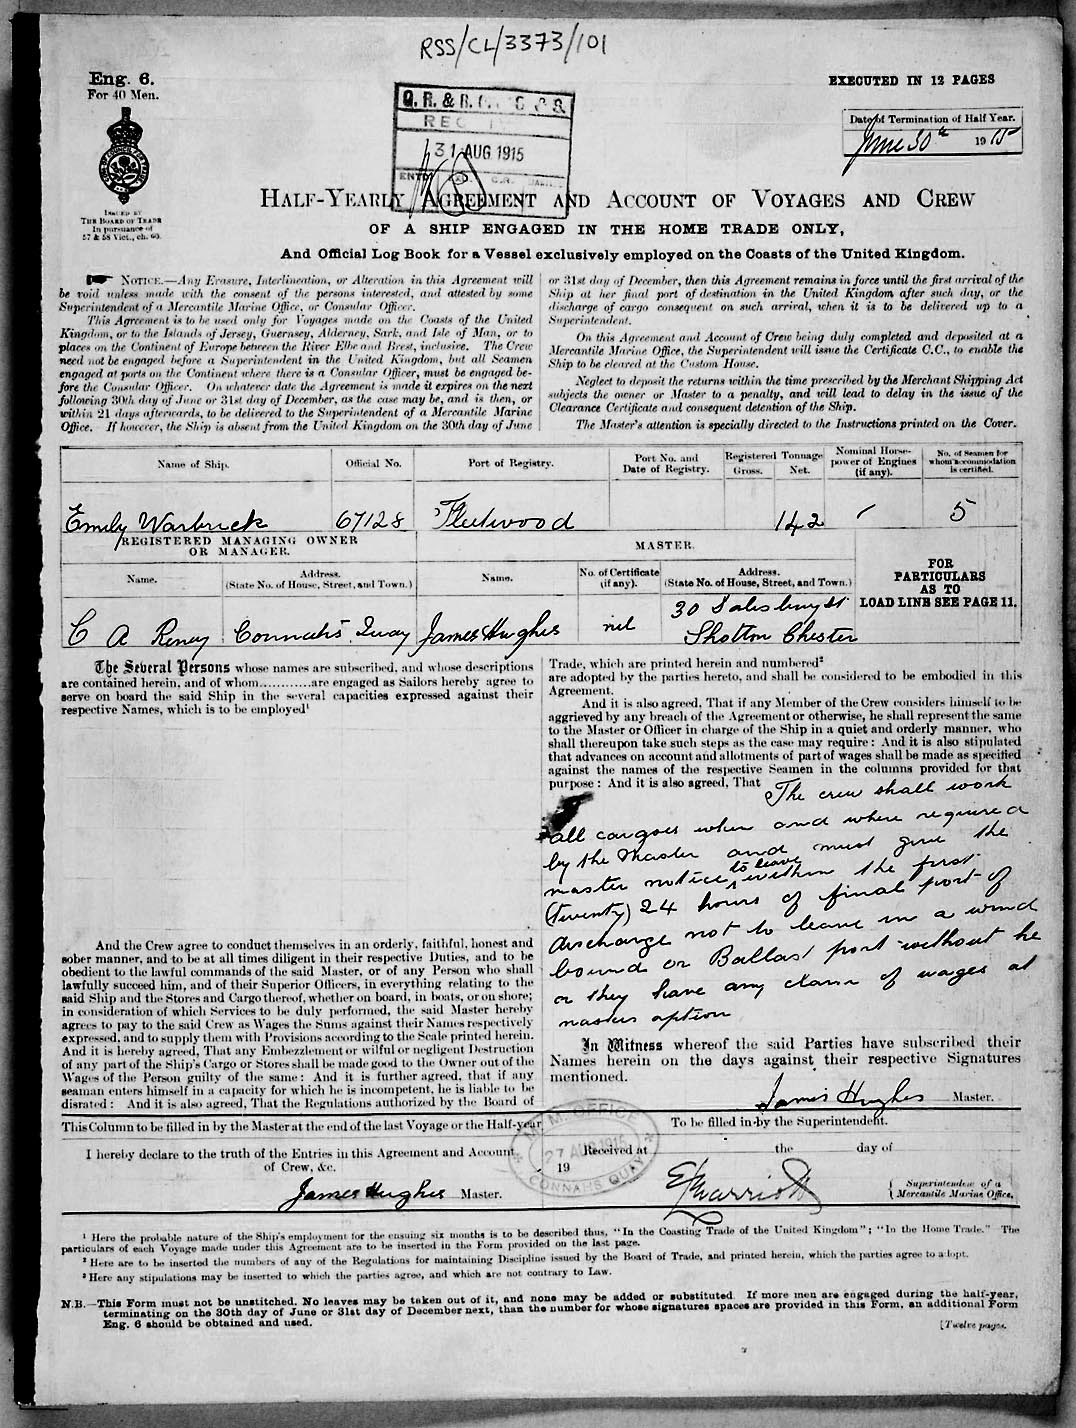 RSS/CL/3373/101
Eng. 6.
For 40 Men.
EXECUTED IN 12 PAGES
Date of Termination of Half Year.
June 30th 1915
ISSUED BY
THE BOARD OF TRADE
In pursuance of
57 & 58 Vict., ch. 60.
31 AUG 1915
HALF-YEARLY AGREEMENT AND ACCOUNT OF VOYAGES AND CREW
OF A SHIP ENGAGED IN THE HOME TRADE ONLY,
And Official Log Book for a Vessel exclusively employed on the Coasts of the United Kingdom.
NOTICE.—Any Erasure, Interlineation, or Alteration in this Agreement will
be void unless made with the consent of the persons interested, and attested by some
Superintendent of a Mercantile Marine Office, or Consular Officer.
This Agreement is to be used only for Voyages made on the Coasts of the United
Kingdom, or to the Islands of Jersey, Guernsey, Alderney, Sark, and Isle of Man, or to
places on the Continent of Europe between the River Elbe and Brest, inclusive. The Crew
need not be engaged before a Superintendent in the United Kingdom, but all Seamen
engaged at ports on the Continent where there is a Consular Officer, must be engaged be-
fore the Consular Officer. On whatever date the Agreement is made it expires on the next
following 30th day of June or 31st day of December, as the case may be, and is then, or
within 21 days afterwards, to be delivered to the Superintendent of a Mercantile Marine
Office. If however, the Ship is absent from the United Kingdom on the 30th day of June
or 31st day of December, then this Agreement remains in force until the first arrival of the
Ship at her final port of destination in the United Kingdom after such day, or the
discharge of cargo consequent on such arrival, when it is to be delivered up to a
Superintendent.
On this Agreement and Account of Crew being duly completed and deposited at a
Mercantile Marine Office, the Superintendent will issue the Certificate C.C., to enable the
Ship to be cleared at the Custom House.
Neglect to deposit the returns within the time prescribed by the Merchant Shipping Act
subjects the owner or Master to a penalty, and will lead to delay in the issue of the
Clearance Certificate and consequent detention of the Ship.
The Master's attention is specially directed to the Instructions printed on the Cover.
Name of Ship. Official No. Port of Registry. Port No. and Date of Registry. Registered Tonnage Gross. Net. Nominal Horse-power of Engines (if any). No. of Seamen for whom accommodation is certified.
Emily Warbrick 67128 Fleetwood 142 5
REGISTERED MANAGING OWNER
OR MANAGER.
MASTER.
Name. Address. (State No. of House, Street, and Town.) Name. No. of Certificate (if any). Address. (State No. of House, Street, and Town.)
FOR
PARTICULARS
AS TO
LOAD LINE SEE PAGE 11.
C A Reney Connahs Quay James Hughes nil 30 Salesbury St
Shotton Chester
The Several Persons whose names are subscribed, and whose descriptions
are contained herein, and of whom............are engaged as Sailors hereby agree to
serve on board the said Ship in the several capacities expressed against their
respective Names, which is to be employed¹
And the Crew agree to conduct themselves in an orderly, faithful, honest and
sober manner, and to be at all times diligent in their respective Duties, and to be
obedient to the lawful commands of the said Master, or of any Person who shall
lawfully succeed him, and of their Superior Officers, in everything relating to the
said Ship and the Stores and Cargo thereof, whether on board, in boats, or on shore;
in consideration of which Services to be duly performed, the said Master hereby
agrees to pay to the said Crew as Wages the Sums against their Names respectively
expressed, and to supply them with Provisions according to the Scale printed herein.
And it is hereby agreed, That any Embezzlement or wilful or negligent Destruction
of any part of the Ship's Cargo or Stores shall be made good to the Owner out of the
Wages of the Person guilty of the same: And it is further agreed, that if any
seaman enters himself in a capacity for which he is incompetent, he is liable to be
disrated: And it is also agreed, That the Regulations authorized by the Board of
Trade, which are printed herein and numbered²
are adopted by the parties hereto, and shall be considered to be embodied in this
Agreement.
And it is also agreed, That if any Member of the Crew considers himself to be
aggrieved by any breach of the Agreement or otherwise, he shall represent the same
to the Master or Officer in charge of the Ship in a quiet and orderly manner, who
shall thereupon take such steps as the case may require: And it is also stipulated
that advances on account and allotments of part of wages shall be made as specified
against the names of the respective Seamen in the columns provided for that
purpose: And it is also agreed, That The crew shall work
all cargoes when and where required
by the Master and must give the
master notice to leave within the first
(Twenty) 24 hours of final port of
discharge not to leave in a wind
bound or Ballast port without he
or they have any claim of wages at
masters option
In Witness whereof the said Parties have subscribed their
Names herein on the days against their respective Signatures
mentioned.
James Hughes Master.
This Column to be filled in by the Master at the end of the last Voyage or the Half-year
I hereby declare to the truth of the Entries in this Agreement and Account
of Crew, &c.
James Hughes Master.
To be filled in by the Superintendent.
Received at the day of
19
M.M. OFFICE
27 AUG 1915
CONNAHS QUAY
E Marriott
Superintendent of a
Mercantile Marine Office.
¹ Here the probable nature of the Ship's employment for the ensuing six months is to be described thus, "In the Coasting Trade of the United Kingdom"; "In the Home Trade." The
particulars of each Voyage made under this Agreement are to be inserted in the Form provided on the last page.
² Here are to be inserted the numbers of any of the Regulations for maintaining Discipline issued by the Board of Trade, and printed herein, which the parties agree to adopt.
³ Here any stipulations may be inserted to which the parties agree, and which are not contrary to Law.
N.B.—This Form must not be unstitched. No leaves may be taken out of it, and none may be added or substituted. If more men are engaged during the half-year,
terminating on the 30th day of June or 31st day of December next, than the number for whose signatures spaces are provided in this Form, an additional Form
Eng. 6 should be obtained and used.
[Twelve pages.